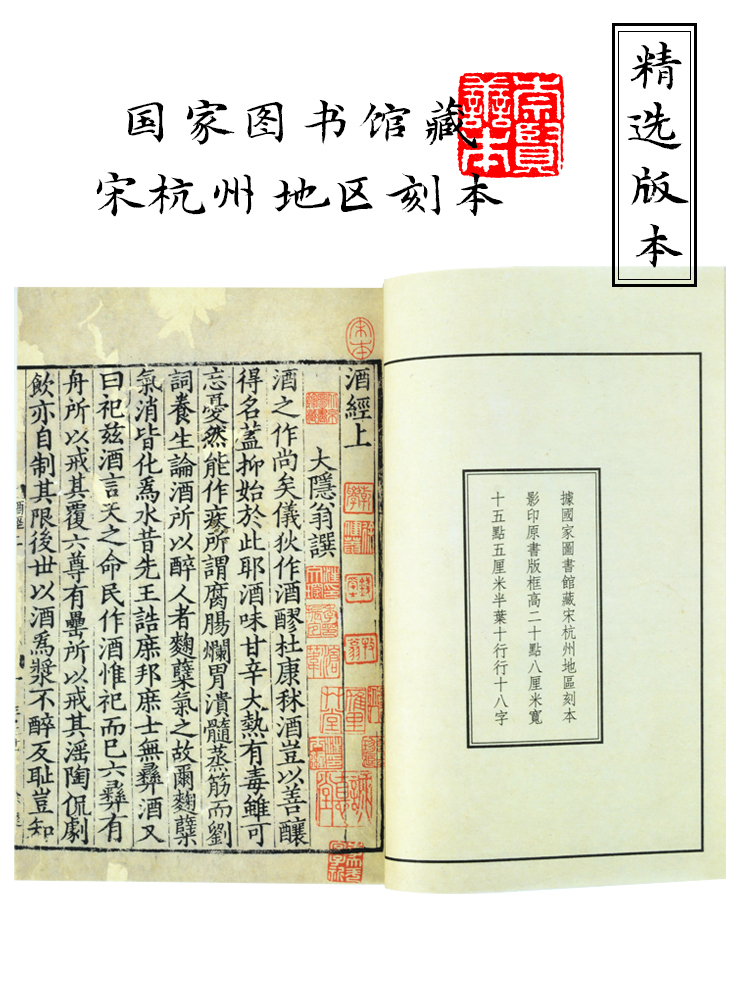 国家图书馆藏
宋杭州地区刻本
崇賢善本
精选版本
據國家圖書館藏宋杭州地區刻本
影印原書版框高二十點八厘米寬
十五點五厘米半葉十行行十八字
酒經上
大隱翁譔
酒之作尚矣儀狄作酒醪杜康秫酒豈以善釀
得名蓋抑始於此耶酒味甘辛大熱有毒雖可
忘憂然能作疾所謂腐腸爛胃潰髓蒸筋而劉
詞養生論酒所以醉人者麴糵氣之故爾麴糵
氣消皆化爲水昔先王誥庶邦庶士無彝酒又
曰祀兹酒言天之命民作酒惟祀而已六彝有
舟所以戒其覆六尊有罍所以戒其淫陶侃劇
飲亦自制其限後世以酒爲漿不醉反恥豈知